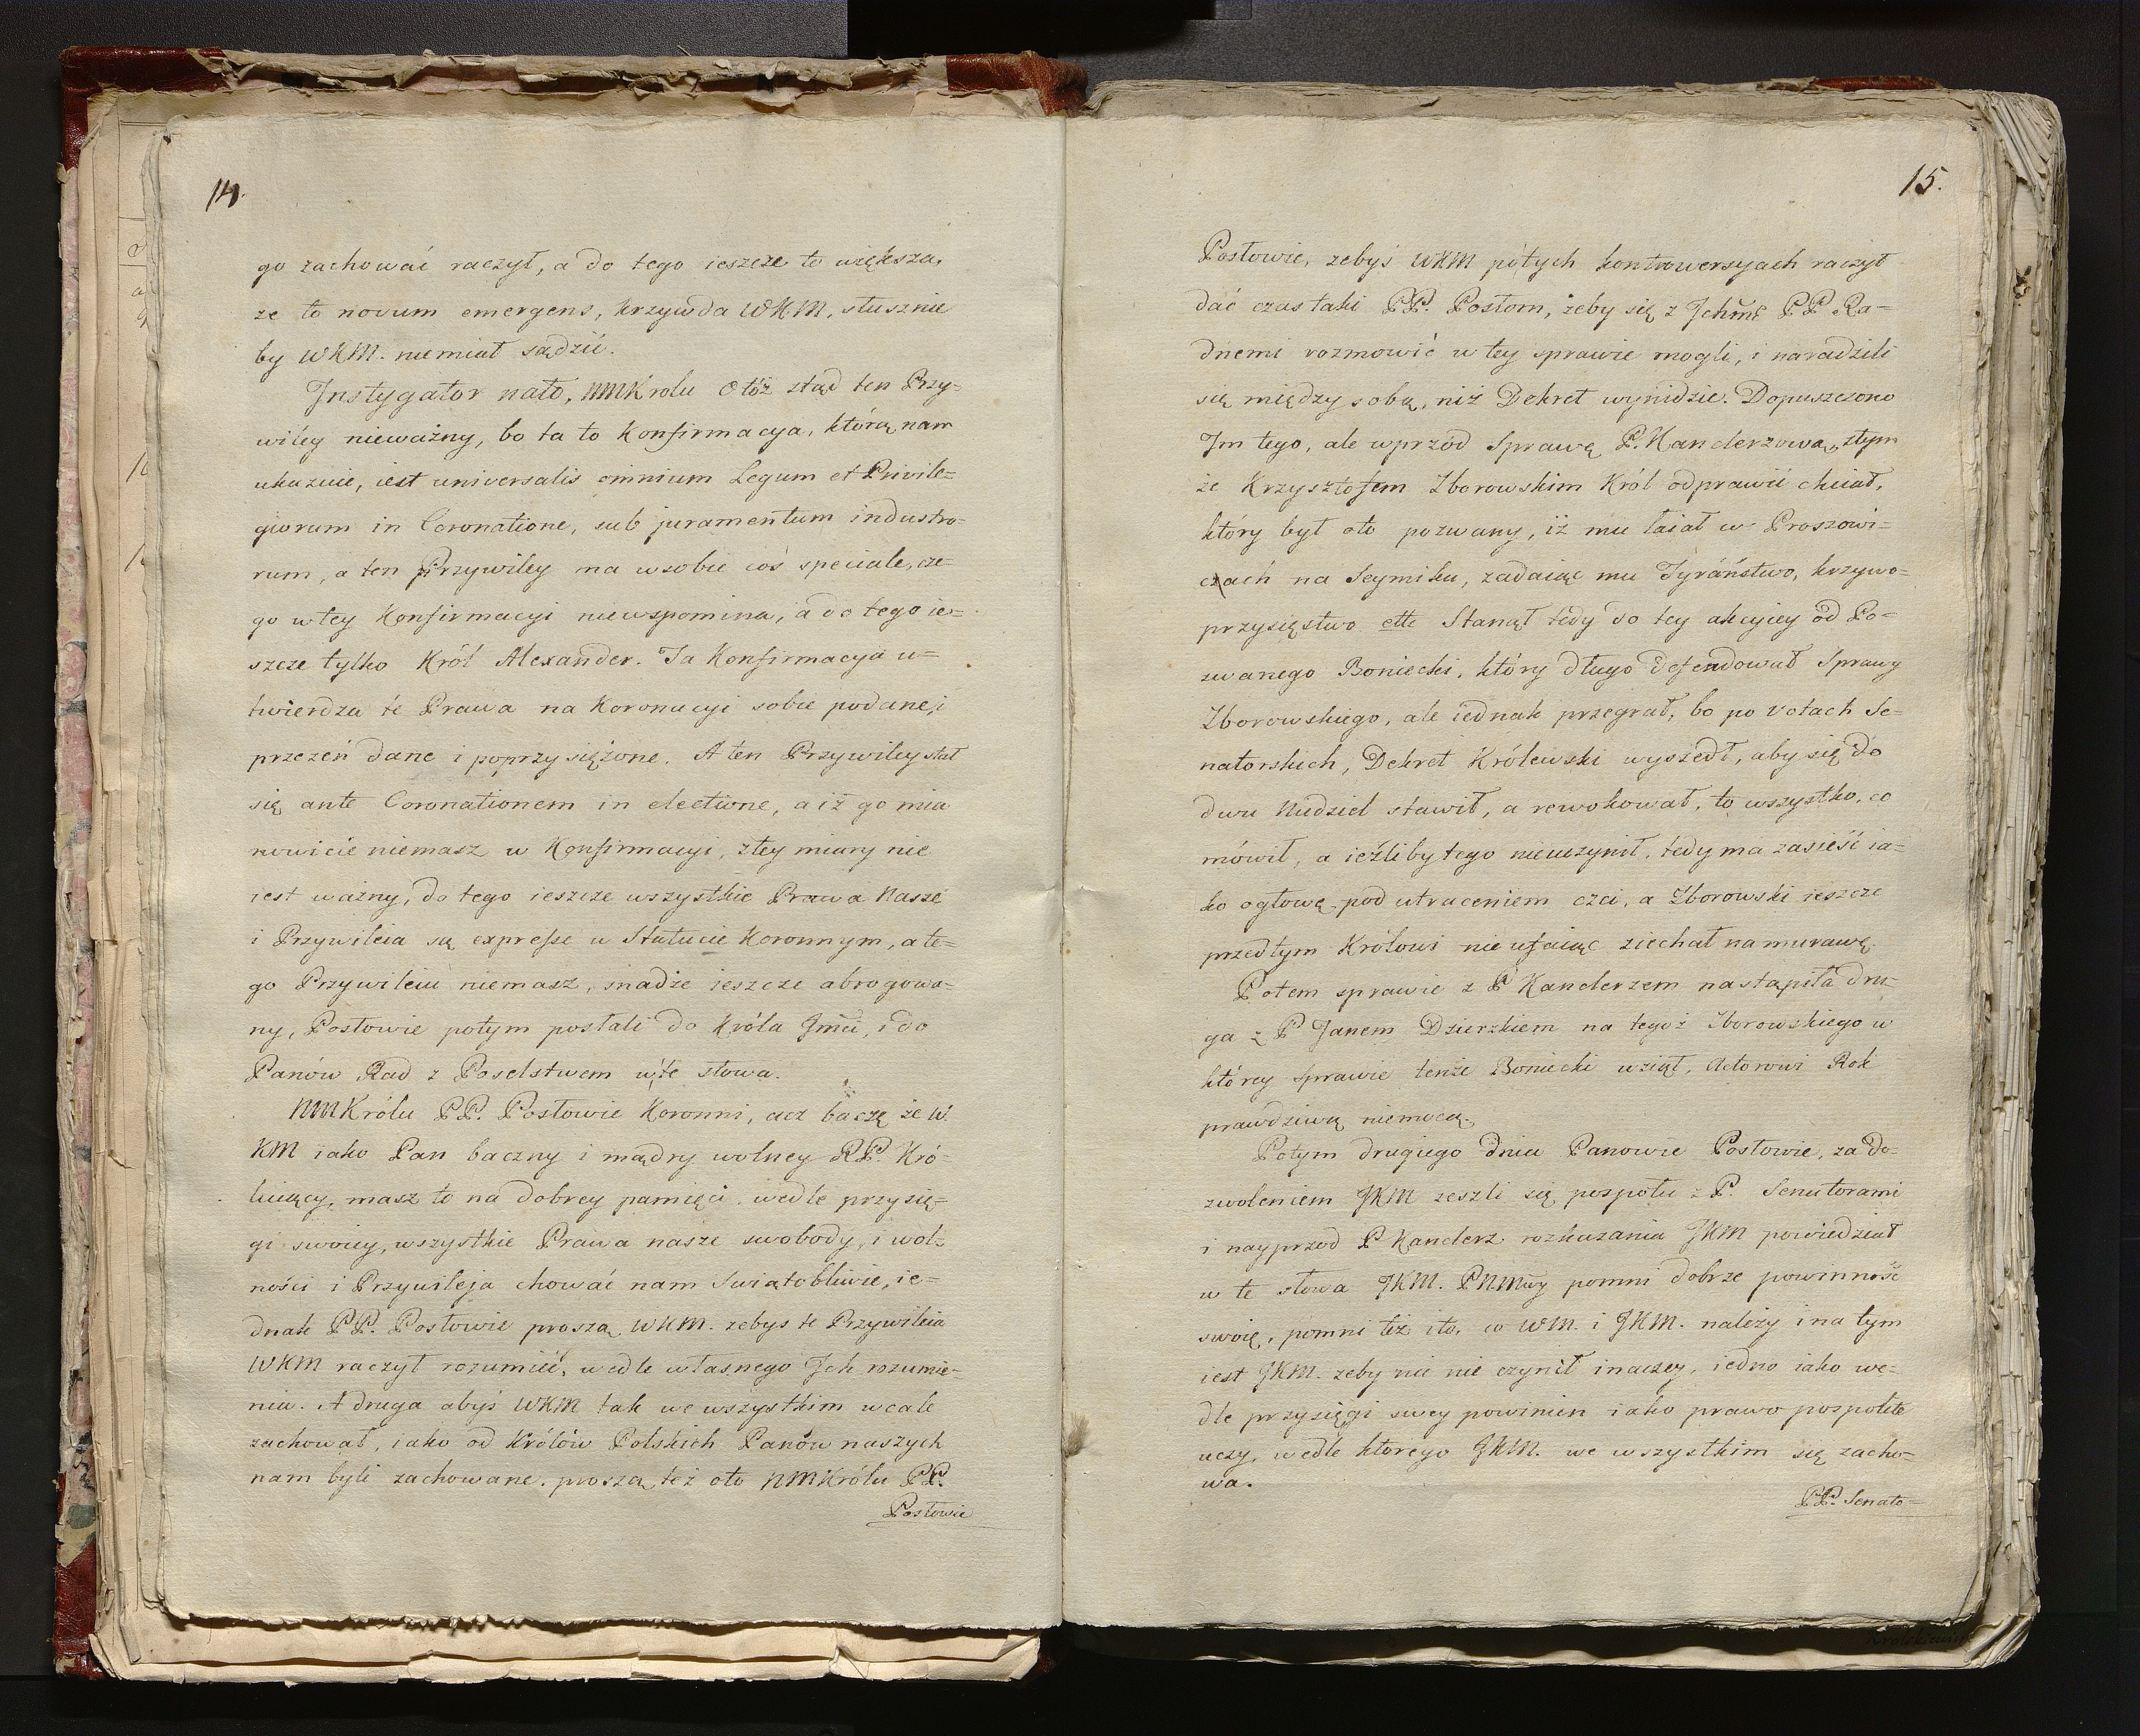 14.
go zachować raczył, a do tego ieszcze to większa,
ze to novum emergens, krzywda WKM, słusznie
by WKM. niemiał sądzić.
Instygator nato, NMKrolu Otóż stąd ten Przy=
wiley nieważny, bo ta to Konfirmacya, którą nam
ukazuie, iest universalis omnium Legum et Privile=
giorum in Coronatione, sub juramentum industro=
rum, a ten Przywiley ma wsobie coś speciale, cze=
go wtey Konfirmacyi niewspomina, a do tego ie=
szcze tylko Król Alexander. Ta Konfirmacya u=
twierdza te Prawa na Koronacyi sobie podane, i
przezeń dane i poprzysiężone. A ten Przywiley stał
się ante Coronationem in electione, a iż go mia
nowicie niemasz w Konfirmacyi, ztey miary nie
iest ważny, do tego ieszcze wszystkie Prawa Nasze
i Przywileia są expresse w Statucie Koronnym, a te=
go Przywileiu niemasz, snadźe ieszcze abrogowa=
ny, Posłowie potym posłali do Króla Jmci, i do
Panów Rad z Poselstwem w te słowa.
NMKrólu PP. Posłowie Koronni, acz baczą że W.
KM iako Pan baczny i mądry wolney RP. Kró=
luiący, masz to na dobrey pamięci wedle przysię=
gi swoiey, wszystkie Prawa nasze swobody, i wol=
ności i Przywileja chować nam Swiątobliwie, ie=
dnak PP. Posłowie proszą WKM. zebys te Przywileia
WKM raczył rozumieć, wedle własnego Ich rozumie=
niu. A druga abyś WKM tak we wszystkim wcale
zachował, iako od Królów Polskich Panów naszych
nam byli zachowane. proszą też oto NMKrólu PP.
Posłowie
15.
Posłowie, zebyś WKM potych kontrowersyach raczył
dać czas taki PP. Posłom, żeby się z Ichmć PP. Ra=
dnemi rozmowić w tey sprawie mogli, i naradzili
się między sobą, niż Dekret wynidzie. Dopuszczono
Im tego, ale wprzód Sprawę P. Kanclerzową, ztym
że Krzysztofem Zborowskim Król odprawić chciał,
który był oto pozwany, iż mu łaiał w Proszowi=
czach na Seymiku, zadaiąc mu Tyráństwo, krzywo=
przysięstwo ettc Stanął tedy do tey akcyiey od Po=
zwanego Boniecki, który długo defendował Sprawy
Zborowskiego, ale iednak przegrał, bo po Votach Se=
natorskich, Dekret Królewski wyszedł, aby się do
dwu Niedziel stawił, a rewokował, to wszystko, co
mówił, a ieźliby tego nieuczynił, tedy ma zasieść ia=
ko ogłowę pod utraceniem czci, a Zborowski ieszcze
przedtym Królowi nie ufaiąc ziechał na murawę.
Potem sprawie z P Kanclerzem nastąpiła dru=
ga z P Janem Dzierzkiem na tegoż Zborowskiego w
którey sprawie tenże Boniecki wziął, Actorowi Rok
prawdziwą niemocą.
Potym drugiego dnia Panowie Posłowie, za do=
zwoleniem JKM zeszli się pospołu z P. Senatorami
i nayprzod P Kanclerz rozkazania JKM powiedział
w te słowa JKM. PNMwy pomni dobrze powinność
swoię, pomni też i to, co WM. i JKM. należy i na tym
iest JKM. zeby nic nie czynił inaczey, iedno iako we=
dle przysięgi swey powinien iako prawo pospolite
uczy, wedle ktorego JKM. we wszystkim się zacho=
wa.
PP. Senato=